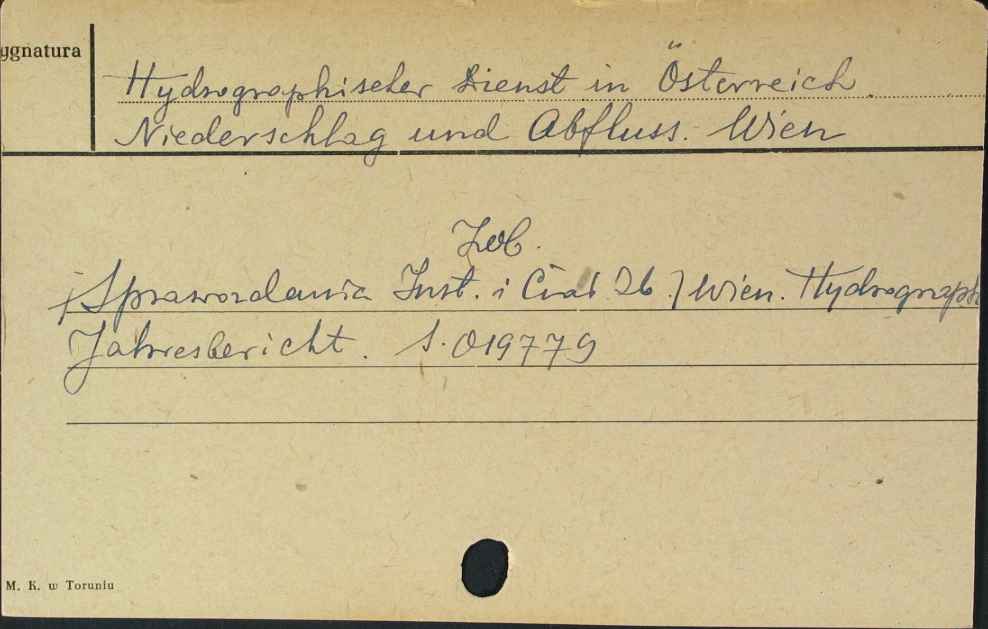 ygnatura
Hydrographischer Dienst in Österreich.
Niederschlag und Abfluss. Wien
Zob.
/Sprawozdania Inst. i Ciał Zb./ Wien. Hydrograph
Jahresbericht. S. 019779
M. K. w Toruniu